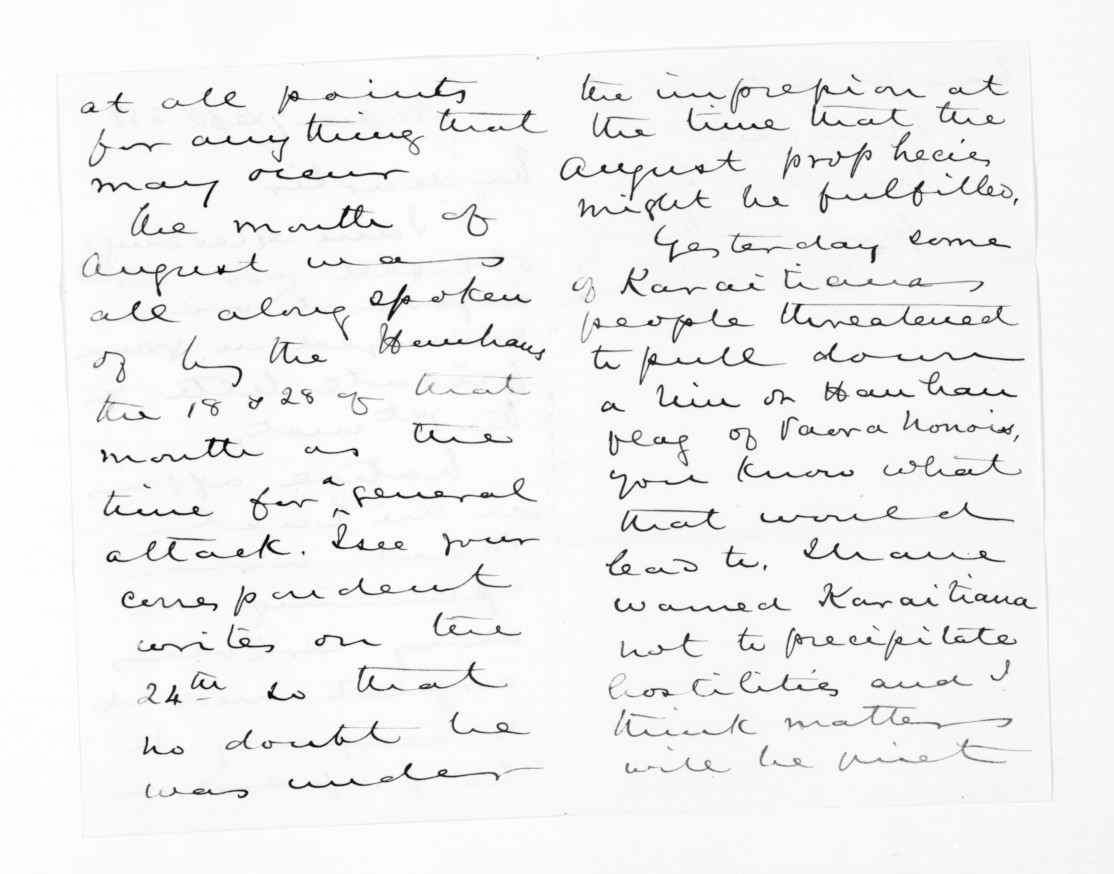 at all points
for anything that
may occur
The month of
August was
all along spoken
of by the Hauhaus
the 18 & 28 of that
month as the
time for a general
attack. I see your
correspondent
writes on the
24th so that
no doubt he
was under
the impression at
the time that the
August prophecies
might be fulfilled.
Yesterday some
of Karaitianas
people threatened
to pull down
a Niu or Hauhau
flag of Paora
you know what
that would
lead to. I have
warned Karaitiana
not to precipitate
hostilities and I
think matters
will be quiet